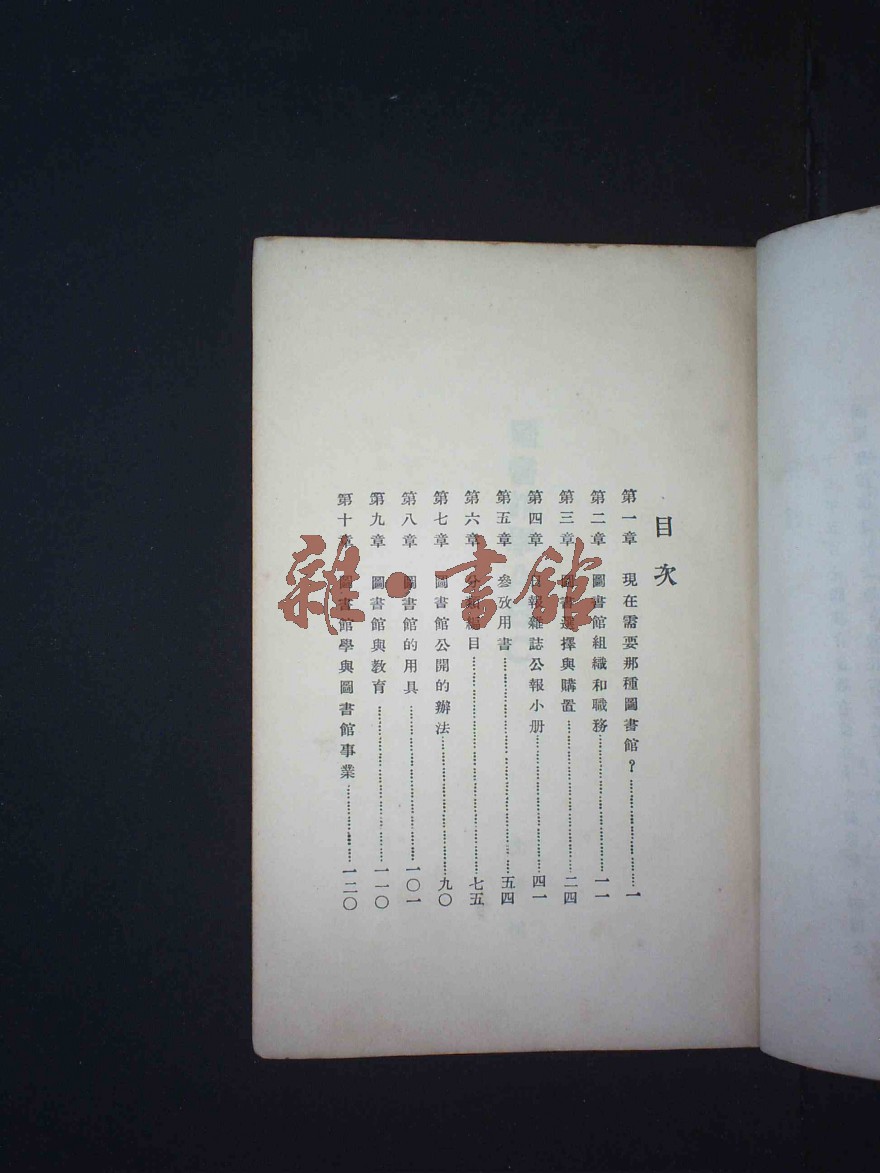 目次
第一章 現在需要那種圖書館？一
第二章 圖書館組織和職務一一
第三章 圖書選擇與購置二四
第四章 日報雜誌公報小册四一
第五章 參攷用書五四
第六章 分類編目七五
第七章 圖書館公開的辦法九〇
第八章 圖書館的用具一〇一
第九章 圖書館與教育一一〇
第十章 圖書館學與圖書館事業一二〇
雜·書館